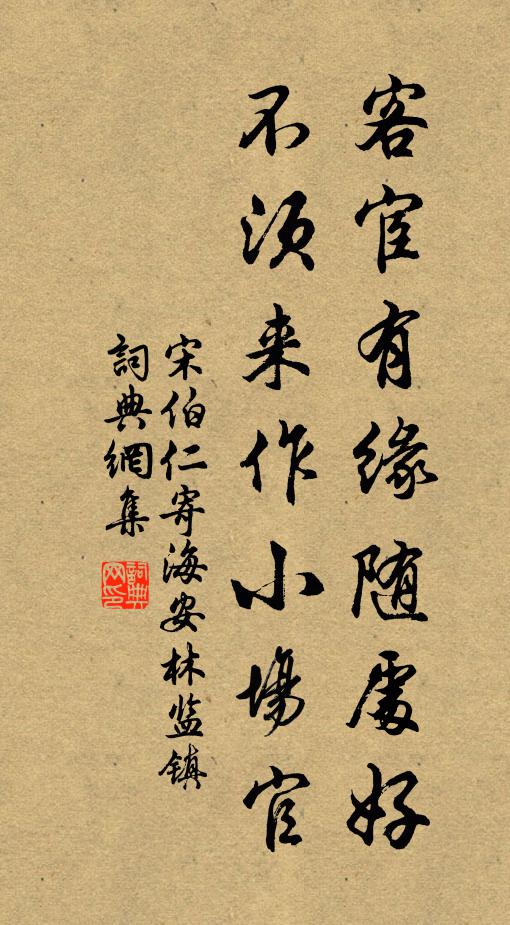 客宦有缘随處好
不须来作小場官
宋伯仁寄海安林监镇
詞典網集
詞典网印